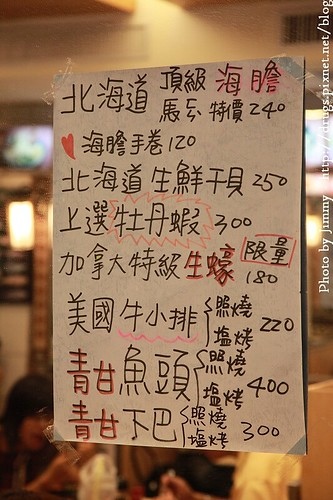 北海道 頂級 海膽
馬糞 特價 240
海膽手卷 120
北海道生鮮干貝 250
上選牡丹蝦 300
加拿大特級生蠔 限量 180
美國牛小排 照燒 塩烤 220
青甘魚頭 照燒 塩烤 400
青甘下巴 照燒 塩烤 300
Photo by jimmy http://drugs.pixnet.net/blog